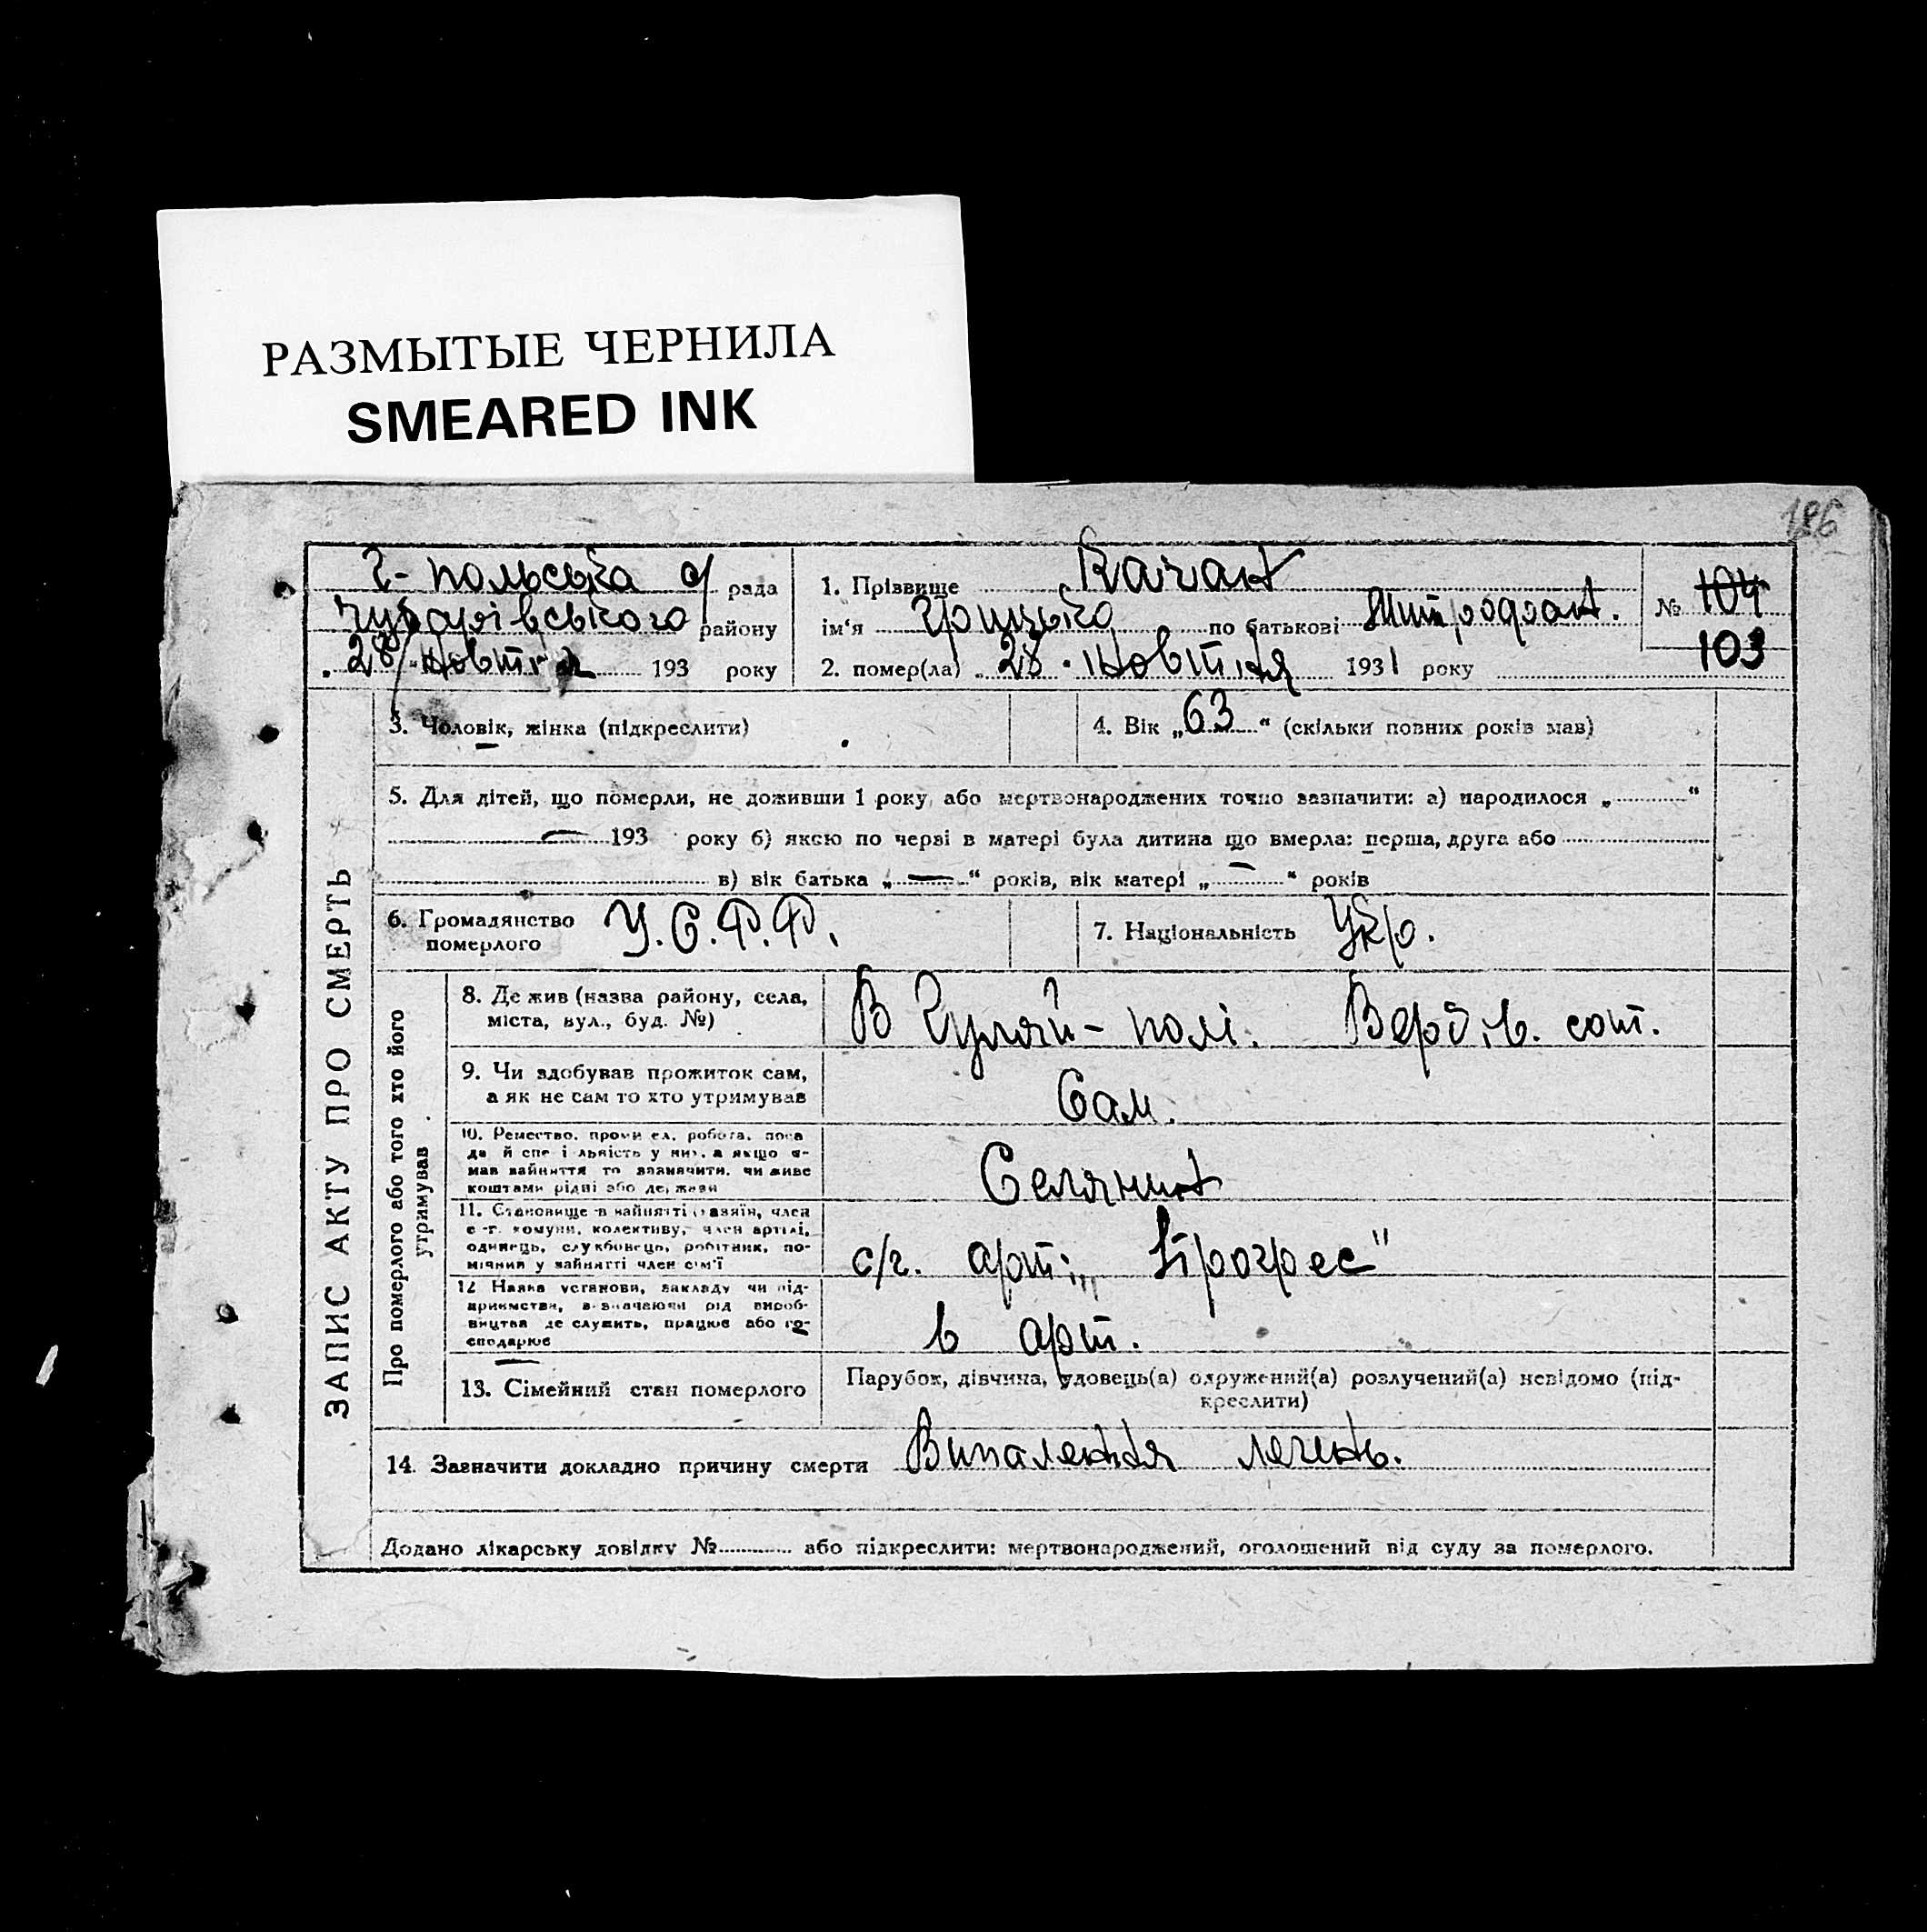 РАЗМЫТЫЕ ЧЕРНИЛА
SMEARED INK
186
Г-польська с/ рада
Чубарівського району
28/ Жовтня 193 року
1. Прізвище Качан
ім'я Грицько по батькові Митрофан.
2. помер(ла) 28. Жовтня 1931 року
№ 104
103
ЗАПИС АКТУ ПРО СМЕРТЬ
3. Чоловік, жінка (підкреслити)
4. Вік „63“ (скільки повних років мав)
5. Для дітей, що померли, не доживши 1 року, або мертвонароджених точно зазначити: а) народилося „ “
193 року б) якою по черві в матері була дитина що вмерла: перша, друга або
в) вік батька „ — “ років, вік матері „ — “ років
6. Громадянство
померлого
У.С.Р.Р.
7. Національність Укр.
Про померлого або того хто його
утримував
8. Де жив (назва району, села,
міста, вул., буд. №)
В Гуляй-полі. Верб.в. сот.
9. Чи здобував прожиток сам,
а як не сам то хто утримував
Сам.
10. Ремество, робота,
коштами рідні або
Селянин
11. Становище в зайнятті член
комуни, колективу, член артілі,
одинець, службовець, робітник, по-
мічний у зайнятті член сім'ї
с/г. арт. „Прогрес"
12 Назва установи, закладу чи під-
приємства, вироб-
ництва де служить, працює або го-
сподарює
в арт.
13. Сімейний стан померлого
Парубок, дівчина, удовець(а) одружений(а) розлучений(а) невідомо (під-
креслити)
14. Зазначити докладно причину смерти Випалення легень.
Додано лікарську довідку № або підкреслити: мертвонароджений, оголошений від суду за померлого.